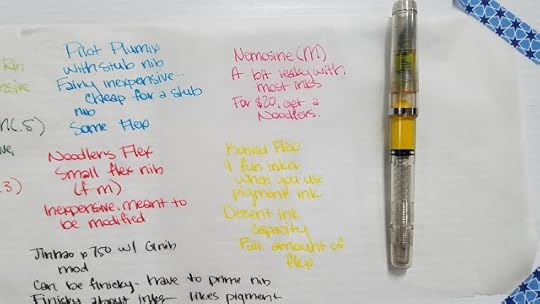 Pilot Plumix
with stub nib
Fairly inexpensive..
cheap for a stub
nib
Some Flex
Nemosine (M)
A bit leaky with
most inks
For $20, get a
Noodlers.
(.5)
.3)
Noodlers Flex
Small flex nib
(f m)
Inexpensive. meant to
be modified
Konrad Flex
A fun inker
when you use
pigment ink
Decent ink
capacity
Fair amount of
flex
Jinhao x750 w/ Gnib
mod
Can be finicky - have to prime nib
Finicky about inks - likes pigment